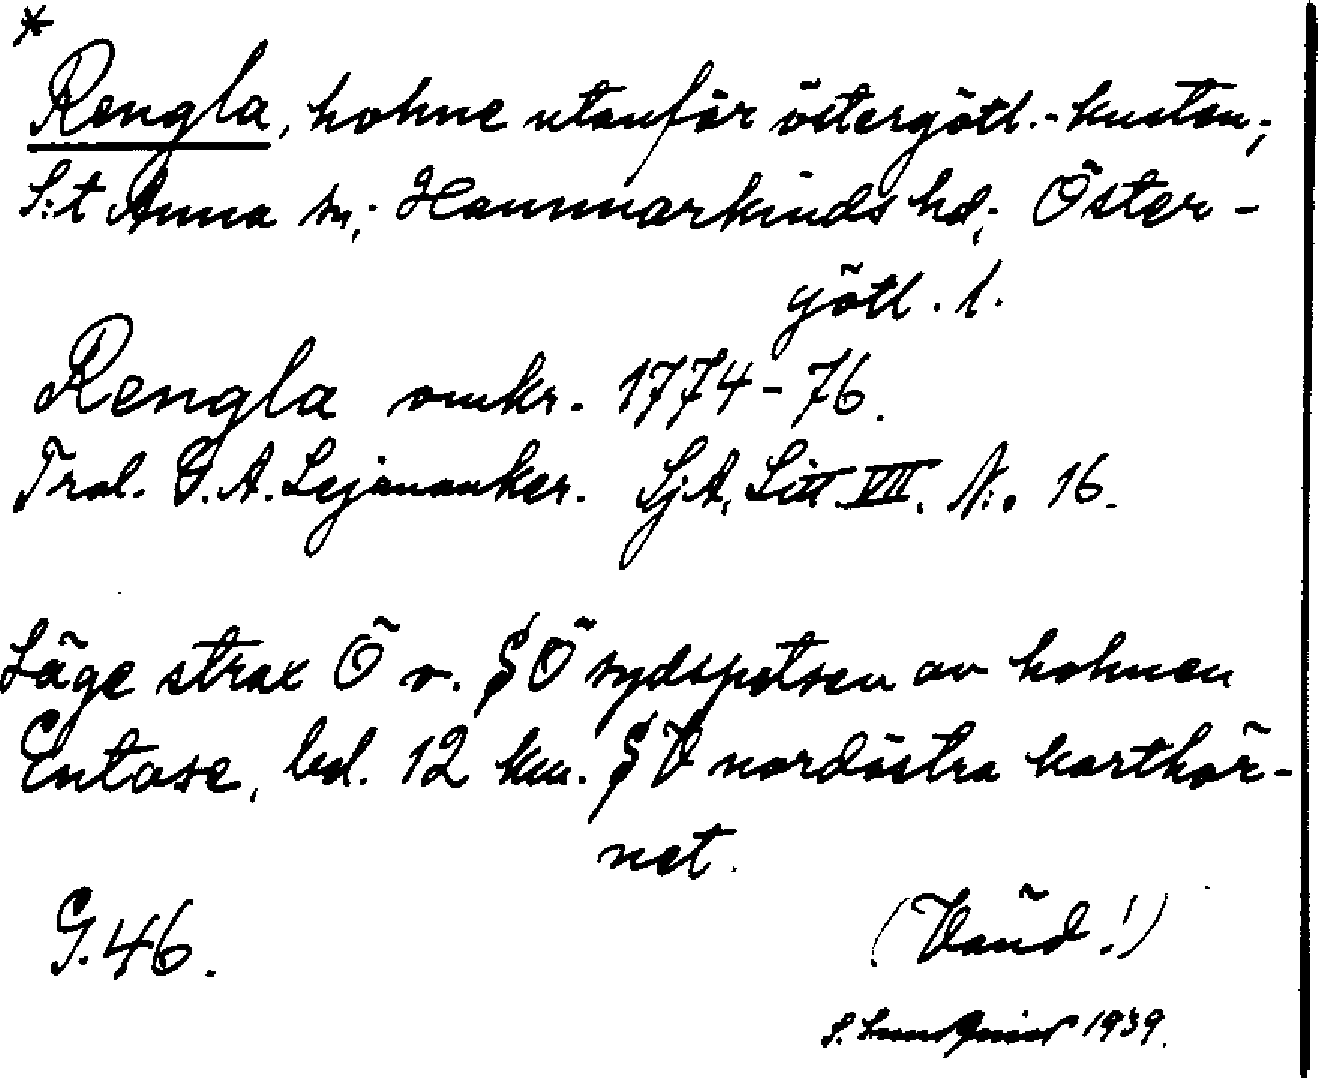 *
Rengla, holme utanför östergötl.-kusten;
S:t Anna sn; Hammarkinds hd; Öster-
götl. l.
Rengla omkr. 1774-76.
Trol. G. A. Lejonanker. SjA, Litt. VII. N:o 16.
Läge strax Ö v. §Ö sydspetsen av holmen
Entose, bel. 12 km. §V nordöstra karthör-
net.
G.46.
(Vänd!)
S. 1939.